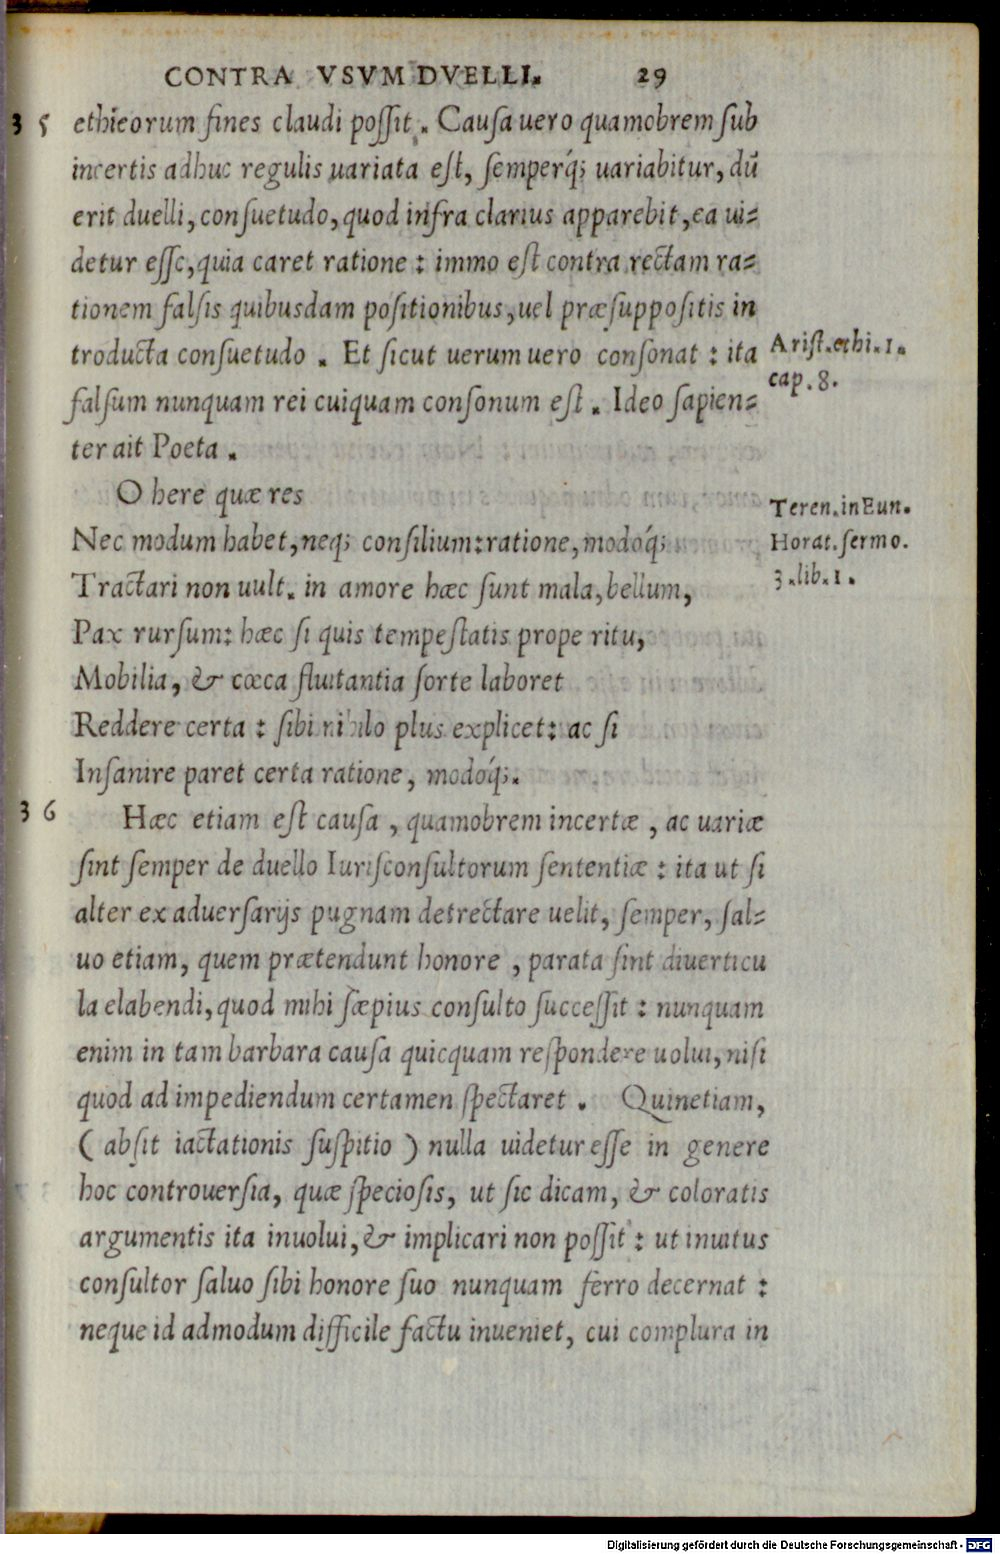 CONTRA VSVM DVELLI. 29
35 ethicorum fines claudi poſſit. Cauſa uero quamobrem ſub
incertis adhuc regulis uariata eſt, ſemperq́; uariabitur, dũ
erit duelli, conſuetudo, quod infra clarius apparebit, ea ui-
detur eſſe, quia caret ratione: immo eſt contra rectam ra-
tionem falſis quibusdam poſitionibus, uel præſuppoſitis in
troducta conſuetudo. Et ſicut uerum uero conſonat: ita
Ariſt. ethi. 1.
cap. 8.
falſum nunquam rei cuiquam conſonum eſt. Ideo ſapien-
ter ait Poeta.
O here quæ res
Teren. in Eun.
Nec modum habet, neq; conſilium: ratione, modoq́;
Horat. ſermo.
3. lib. 1.
Tractari non uult. in amore hæc ſunt mala, bellum,
Pax rurſum: hæc ſi quis tempeſtatis prope ritu,
Mobilia, & cœca fluitantia ſorte laboret
Reddere certa: ſibi nihilo plus explicet: ac ſi
Inſanire paret certa ratione, modoq́;.
36 Hæc etiam eſt cauſa, quamobrem incertæ, ac uariæ
ſint ſemper de duello Iuriſconſultorum ſententiæ: ita ut ſi
alter ex aduerſarijs pugnam detrectare uelit, ſemper, ſal-
uo etiam, quem prætendunt honore, parata ſint diuerticu
la elabendi, quod mihi ſæpius conſulto ſucceſſit: nunquam
enim in tam barbara cauſa quicquam reſpondere uolui, niſi
quod ad impediendum certamen ſpectaret. Quinetiam,
(abſit iactationis ſuſpitio) nulla uidetur eſſe in genere
hoc controuerſia, quæ ſpecioſis, ut ſic dicam, & coloratis
argumentis ita inuolui, & implicari non poſſit: ut inuitus
conſultor ſaluo ſibi honore ſuo nunquam ferro decernat:
neque id admodum difficile factu inueniet, cui complura in
Digitalisierung gefördert durch die Deutsche Forschungsgemeinschaft - DFG